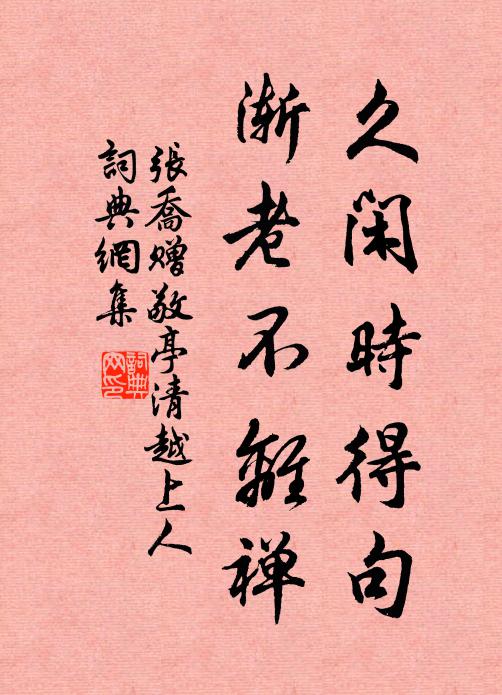 久閑時得句
漸老不離禅
張喬赠敬亭清越上人
詞典網集
詞典
网印